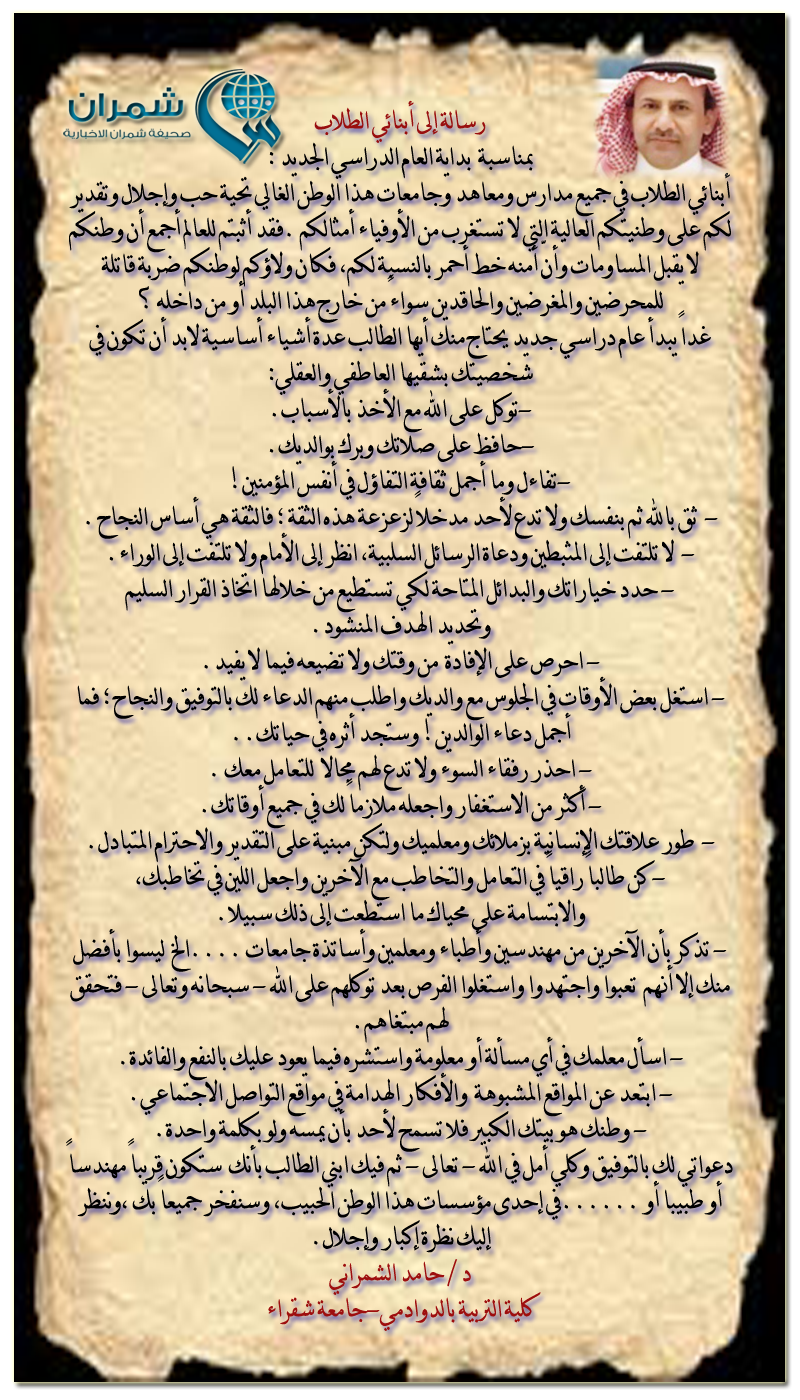 شمران
صحيفة شمران الاخبارية
رسالة إلى أبنائي الطلاب
بمناسبة بداية العام الدراسي الجديد :
أبنائي الطلاب في جميع مدارس ومعاهد وجامعات هذا الوطن الغالي تحية حب وإجلال وتقدير
لكم على وطنيتكم العالية التي لا تستغرب من الأوفياء أمثالكم . فقد أثبتم للعالم أجمع أن وطنكم
لا يقبل المساومات وأن أمنه خط أحمر بالنسبة لكم، فكان ولاؤكم لوطنكم ضربة قاتلة
للمحرضين والمغرضين والحاقدين سواء من خارج هذا البلد أو من داخله ؟
غداً يبدأ عام دراسي جديد يحتاج منك أيها الطالب عدة أشياء أساسية لابد أن تكون في
شخصيتك بشقيها العاطفي والعقلي:
-توكل على الله مع الأخذ بالأسباب .
-حافظ على صلاتك وبرك بوالديك .
-تفاءل وما أجمل ثقافة التفاؤل في أنفس المؤمنين !
- ثق بالله ثم بنفسك ولا تدع لأحد مدخلا لزعزعة هذه الثقة ؛ فالثقة هي أساس النجاح .
- لا تلتفت إلى المثبطين ودعاة الرسائل السلبية، انظر إلى الأمام ولا تلتفت إلى الوراء .
-حدد خياراتك والبدائل المتاحة لكي تستطيع من خلالها اتخاذ القرار السليم
وتحديد الهدف المنشود .
-احرص على الإفادة من وقتك ولا تضيعه فيما لا يفيد .
-استغل بعض الأوقات في الجلوس مع والديك واطلب منهم الدعاء لك بالتوفيق والنجاح ؛ فما
أجمل دعاء الوالدين ! وستجد أثره في حياتك . .
-احذر رفقاء السوء ولا تدع لهم مجالا للتعامل معك .
-أكثر من الاستغفار واجعله ملازما لك في جميع أوقاتك .
- طور علاقتك الإنسانية بزملائك ومعلميك ولتكن مبنية على التقدير والاحترام المتبادل .
-كن طالبا راقيا في التعامل والتخاطب مع الآخرين واجعل اللين في تخاطبك،
والابتسامة على محياك ما استطعت إلى ذلك سبيلا .
-تذكر بأن الآخرين من مهندسين وأطباء ومعلمين وأساتذة جامعات . . . . الخ ليسوا بأفضل
منك إلا أنهم تعبوا واجتهدوا واستغلوا الفرص بعد توكلهم على الله - سبحانه وتعالى - فتحقق
لهم مبتغاهم .
-اسأل معلمك في أي مسألة أو معلومة واستشره فيما يعود عليك بالنفع والفائدة .
-ابتعد عن المواقع المشبوهة والأفكار الهدامة في مواقع التواصل الاجتماعي .
-وطنك هو بيتك الكبير فلا تسمح لأحد بأن يمسه ولو بكلمة واحدة .
دعواتي لك بالتوفيق وكلي أمل في الله - تعالى - ثم فيك ابني الطالب بأنك ستكون قريباً مهندساً
أو طبيبا أو . . . . . . في إحدى مؤسسات هذا الوطن الحبيب، وسنفخر جميعاً بك ،وننظر
إليك نظرة إكبار وإجلال .
د / حامد الشمراني
كلية التربية بالدوادمي-جامعة شقراء